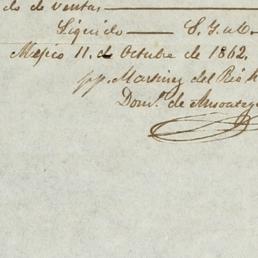 do de venta,
Líquido — S. Y. u O.
Mejico 11. de Octubre de 1862.
pp. Martinez del Rio H
Dom.º de Ansoateg